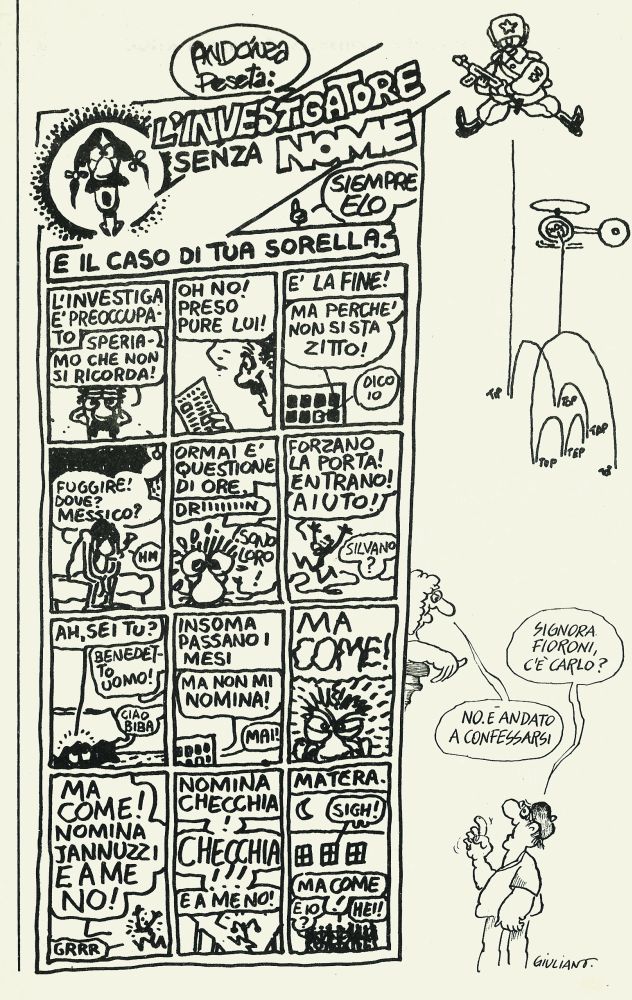 ANDÓNZA
PESETA:
L'INVESTIGATORE
SENZA NOME
SIEMPRE
ELO
E IL CASO DI TUA SORELLA.
L'INVESTIGA
E' PREOCCUPA-
TO
SPERIA-
MO CHE NON
SI RICORDA!
OH NO!
PRESO
PURE LUI!
E' LA FINE!
MA PERCHE'
NON SI STA
ZITTO!
DICO
IO
FUGGIRE!
DOVE?
MESSICO?
HM
ORMAI E'
QUESTIONE
DI ORE.
DRIIIIIIIN
SONO
LORO
!
FORZANO
LA PORTA!
ENTRANO!
AIUTO!
SILVANO
?
AH, SEI TU?
BENEDET-
TO
UOMO!
CIAO
BIBA
INSOMA
PASSANO I
MESI
MA NON MI
NOMINA!
MAI!
MA
COME!
MA
COME!
NOMINA
JANNUZZI
E A ME
NO!
GRRR
NOMINA
CHECCHIA
!
CHECCHIA
!!!
E A ME NO!
MATERA.
SIGH!
MA COME
E IO
?
HEI!
TUP
TEP
TOP
SIGNORA
FIORONI,
C'È CARLO?
NO. È ANDATO
A CONFESSARSI
GIULIANO.